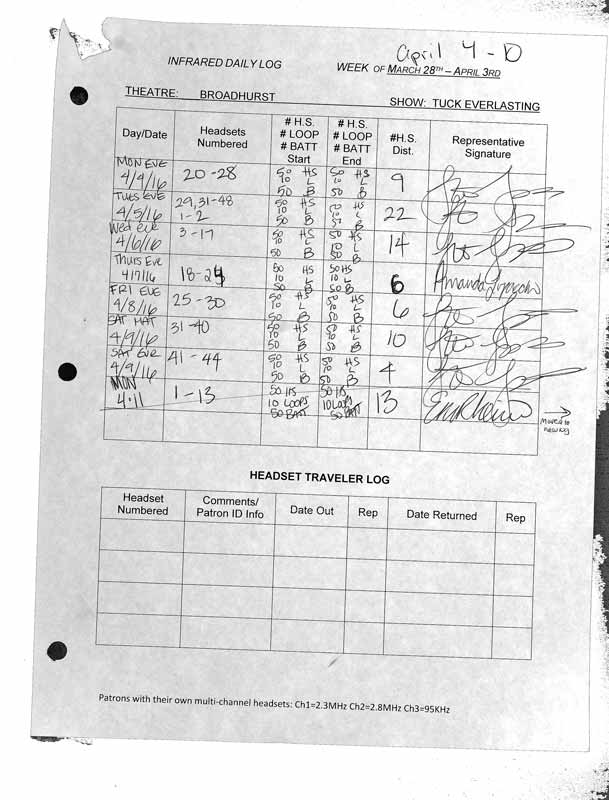 April 4 - 10
INFRARED DAILY LOG WEEK OF MARCH 28TH – APRIL 3RD
THEATRE: BROADHURST SHOW: TUCK EVERLASTING
Day/Date Headsets Numbered # H.S. # LOOP # BATT Start # H.S. # LOOP # BATT End #H.S. Dist. Representative Signature
MON EVE 4/4/16 20-28 50 HS 10 L 50 B 50 HS 10 L 50 B 9
TUES EVE 4/5/16 29, 31-48 1-2 50 HS 10 L 50 B 50 HS 10 L 50 B 22
Wed eve 4/6/16 3-17 50 HS 10 L 50 B 50 HS 10 L 50 B 14
Thurs Eve 4/7/16 18-24 50 HS 10 L 50 B 50 HS 10 L 50 B 6 Amanda
FRI EVE 4/8/16 25-30 50 HS 10 L 50 B 50 HS 10 L 50 B 6
SAT MAT 4/9/16 31-40 50 HS 10 L 50 B 50 HS 10 L 50 B 10
SAT EVE 4/9/16 41-44 50 HS 10 L 50 B 50 HS 10 L 50 B 4
MON 4.11 1-13 50 HS 10 LOOPS 50 BATT 50 HS 10 LOOPS 50 BATT 13
Moved to new log
HEADSET TRAVELER LOG
Headset Numbered Comments/ Patron ID Info Date Out Rep Date Returned Rep
Patrons with their own multi-channel headsets: Ch1=2.3MHz Ch2=2.8MHz Ch3=95KHz